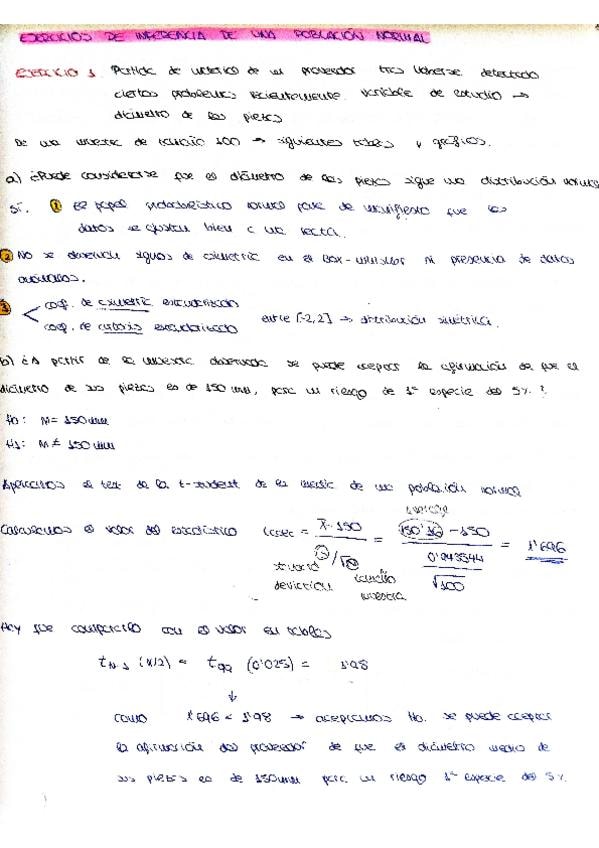 EJERCICIOS DE INFERENCIA DE UNA POBLACIÓN NORMAL
EJERCICIO 1. Partida de material de un proveedor tras haberse detectado
ciertos problemas recientemente. Variable de estudio →
diámetro de las piezas
De una muestra de tamaño 100 → siguientes tablas y gráficos.
a) ¿Puede considerarse que el diámetro de las piezas sigue una distribución normal
Sí. 1 El papel probabilístico normal pone de manifiesto que los
datos se ajustan bien a una recta.
2 No se observan signos de asimetría en el Box-whisker ni presencia de datos
anómalos.
3 coef. de asimetría estandarizado
coef. de curtosis estandarizado
entre [-2,2] → distribución simétrica.
b) ¿A partir de la muestra observada se puede aceptar la afirmación de que el
diámetro de sus piezas es de 150 mm, para un riesgo de 1ª especie del 5%?
H0: M = 150 mm
H1: M ≠ 150 mm
Aplicamos el test de la t-student de la media de una población normal
average
Calculamos el valor del estadístico tcalc = x̄ - 150 / S/√n = 150'16 - 150 / 0'943544 / √100 = 1'696
standard deviation
tamaño muestra
Hay que compararlo con el valor en tablas
tN-1 (α/2) = t99 (0'025) = 1'98
↓
como 1'696 < 1'98 → aceptamos H0. se puede aceptar
la afirmación del proveedor de que el diámetro medio de
sus piezas es de 150mm para un riesgo 1ª especie del 5%.